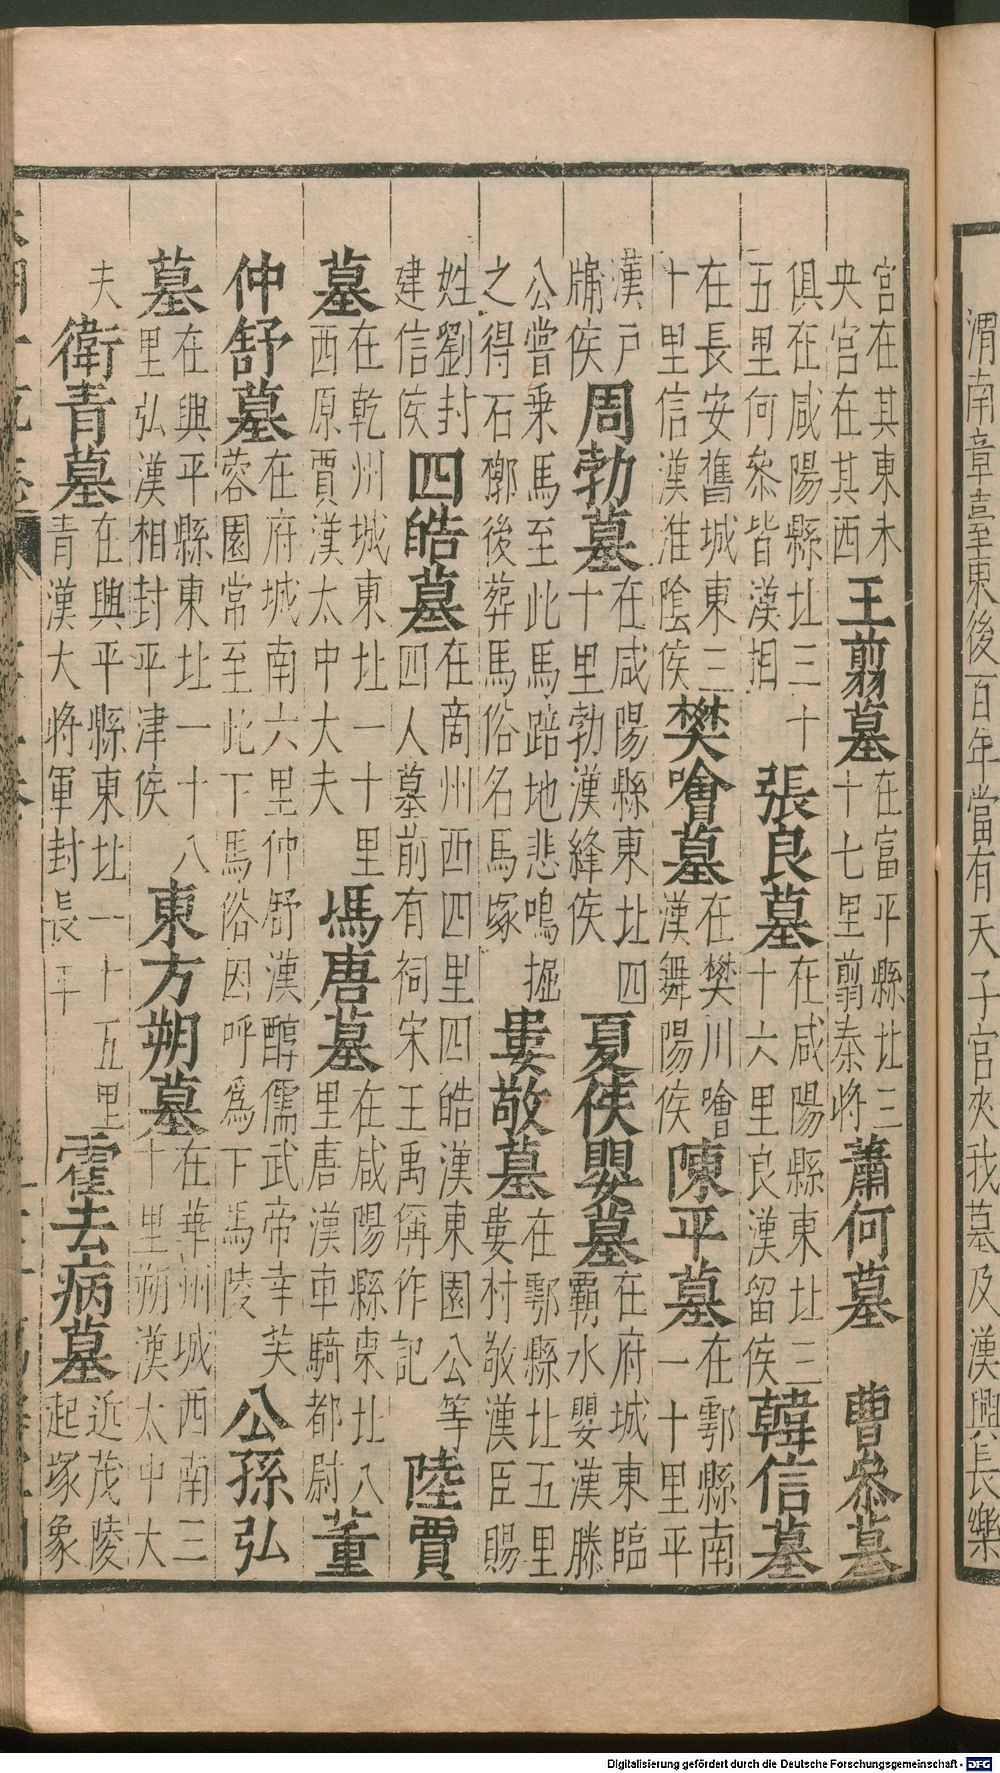 渭南章臺東後百年當有天子宮夾我墓及漢興長樂
宮在其東未央宮在其西王翦墓在富平縣北三十七里翦秦將蕭何墓 曹參墓
俱在咸陽縣北三十五里何參皆漢相張良墓在咸陽縣東北三十六里良漢留侯韓信墓
在長安舊城東三十里信漢淮陰侯樊噲墓在樊川噲漢舞陽侯陳平墓在鄠縣南一十里平
漢戶牖侯周勃墓在咸陽縣東北四十里勃漢絳侯夏侯嬰墓在府城東臨霸水嬰漢滕
公嘗乗馬至此馬踣地悲鳴掘之得石槨後葬焉俗名馬塚婁敬墓在鄠縣北五里婁村敬漢臣賜
姓劉封建信侯四皓墓在商州西四里四皓漢東園公等四人墓前有祠宋王禹偁作記陸賈
墓在乾州城東北一十里西原賈漢太中大夫馮唐墓在咸陽縣東北八里唐漢車騎都尉董
仲舒墓在府城南六里仲舒漢醇儒武帝幸芙蓉園常至此下馬俗因呼為下馬陵公孫弘
墓在興平縣東北一十八里弘漢相封平津侯東方朔墓在華州城西南三十里朔漢太中大
夫衛青墓在興平縣東北一十五里青漢大將軍封長平霍去病墓近茂陵起塚象
Digitalisierung gefördert durch die Deutsche Forschungsgemeinschaft - DFG